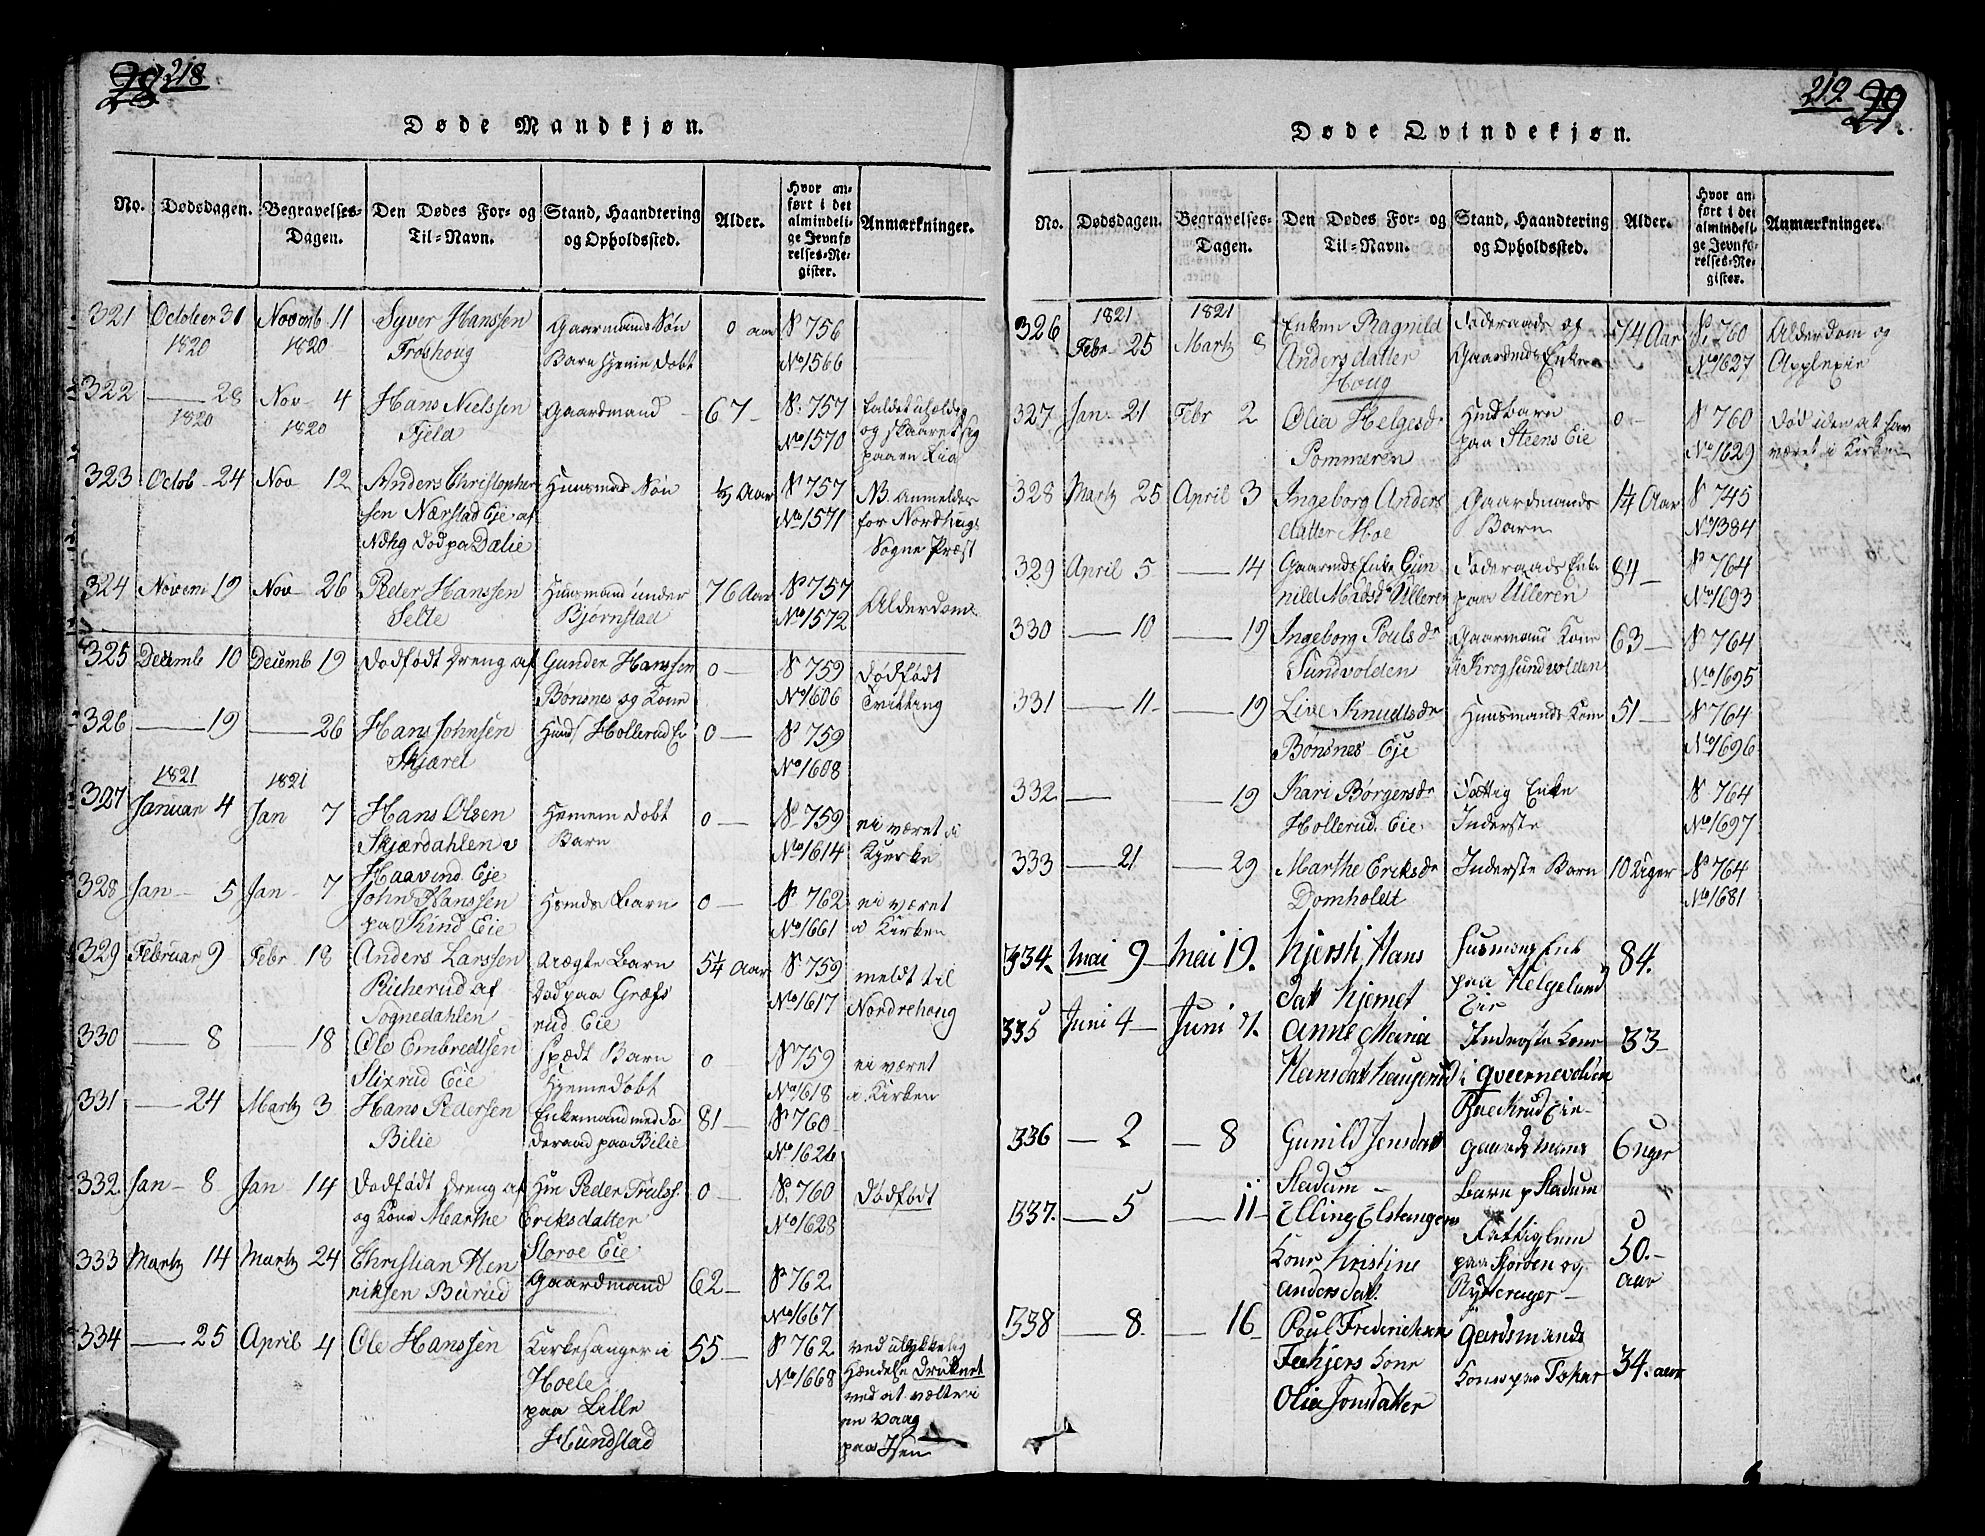 28 218
Døde Mandkjøn.
No. Dødsdagen. Begravelses-Dagen. Den Dødes For- og Til-Navn. Stand, Haandtering og Opholdssted. Alder. Hvor anført i det almindelige Jevnførelses-Register. Anmærkninger.
321 October 31 Novemb 11 Syver Hanssen Gaarmands Søn 0 aar P 756
1820 1820 Froshoug Barn hjemedobt No 1566
322 — 28 Nov 4 Hans Nielssen Gaardmand 67 — P. 757 faldet uheldig
1820 1820 Fjeld No 1570 og skaaret sig
paa en Lia
323 Octob 24 Nov 12 Anders Christopher Huusmds Søn ½ Aar P 757 NB Anmeldes
sen Nærstad Eje af No 1571 for Nordhougs
Ndhg død pa Dælie Sogne Præst
324 Novem 19 Nov 26 Peder Hanssen Huusmand under 76 Aar P 757 Alderdom
Selte Bjørnstad No 1572
325 Decemb 10 Decemb 19 Dødfødt Dreng af Gunder Hanssen 0 — P 759 Dødfødt
Bønsnes og Kone No 1606 Tvilling
326 — 19 — 26 Hans Johnsen Hmd Hollerud Ei 0 — P 759
Skjæret No 1608
1821 1821
327 Januar 4 Jan 7 Hans Olsen Hjemem dobt 0 — P. 759 ei været i
Skjærdahlen v Barn No 1614 Kjerke
Haavind Eje
328 Jan 5 Jan 7 John Hanssen Hsmds Barn 0 — P 762 ei været
pa Rind Eie No 1661 i Kirken
329 Februar 9 Febr 18 Anders Larssen Uægte Barn 5¼ Aar P 759 meldt til
Richerud af Død paa Græfs No 1617 Nordrehoug
Sognedahlen rud Eie
330 — 8 — 18 Ole Embredtsen spædt Barn 0 P 759 ei været
Stixrud Eie Hjemedøbt No 1618 i Kirken
331 — 24 Martz 3 Hans Pedersen Enkemand med Fø 81 — P 760
Bilie deraad paa Bilie No 1626
332 Jan 8 Jan 14 Dødfødt Dreng af Hm Peder Trulss. 0 — P. 760 Dødfødt
og Kone Marthe Eriksdatter No 1628
Storøe Eie
333 Martz 14 Martz 24 Christian Hen Gaardmand 62 — P 762
riksen Burud No 1667
334 — 25 April 4 Ole Hanssen Kirkesanger i 55 — P 762 ved ulykkelig
Hoele No 1668 Hændelse druknet
paa Lille ved at vælte i
Hundstad en Vaag
paa Isen
219. 29
Døde Qvindekjøn.
No. Dødsdagen. Begravelses-Dagen. Den Dødes For- og Til-Navn. Stand, Haandtering og Opholdssted. Alder. Hvor anført i det almindelige Jevnførelses-Register. Anmærkninger.
1821 1821
326 Febr 25 Martz 8 Enken Ragnild Foderaads og 74 Aar P. 760 Alderdom og
Andersdatter Gaardmds Enke No 1627 Applexie
Houg
327 Jan 21 Febr 2 Olia Helgesdr Hmd barn 0 — P 760 Død uden at hav
Pommeren paa Steens Eie No 1629 været i Kirken
328 Martz 25 April 3 Ingeborg Anders Gaardmands 14 Aar P 745
datter Moe Barn No 1384
329 April 5 — 14 Gaarmds Enke Gun Foderaads Enke 84 — P 764
nild Madsdr Ulleren paa Ulleren No 1693
330 — 10 — 19 Ingeborg Poulsdr Gaarmand Kone 63 — P 764
Sundvolden pa Kroglsundvolden No 1695
331 — 11 — 19 Live Knudtsdr Huusmands Kone 51 — P 764
Bønsnes Eje No 1696
332 — — 19 Kari Børgersdr Fattig Enke P 764
Hollerud Eie Inderste No 1697
333 — 21 — 29 Marthe Eriksdr Inderste Barn 10 Uger P 764
Domholdt No 1681
334. mai 9 — mai 19. Kjersti Hans Husmans Enk 84.
dat Hjemet paa Helgeland
Eie
335 Juni 4 — Juni 7. Anne Maria Inderste Kone 33 —
Hansdat i Qveernevolden
Bæckrud Eie
336 — 2 — 8 Gunild Jensdat gaardsmans 6 uger
Stadum — Barn p Stadum
337. — 5 — 11 Elling Elstangens Fattiglem 50. —
Kone Kristine paa Stordøen og aar
Andersdat.
338 — 8. — 16 Poul Frederichsen Gaardsmands 34. aar
Feehjers Kone Kone paa
Olia Jonsdatter